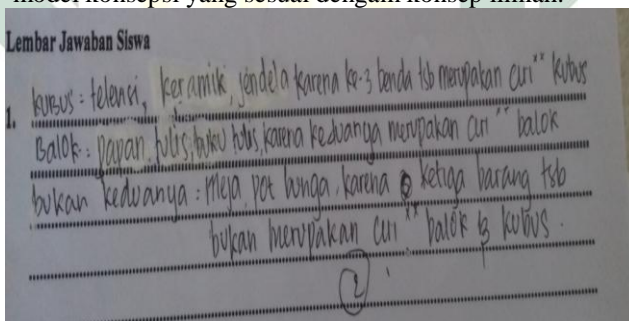 model konsepsi yang sesuai dengan konsep ilmiah.
Lembar Jawaban Siswa
1. kubus = televisi, keramik, jendela karena ke-3 benda tsb merupakan ciri" kubus
Balok = papan tulis, buku tulis, karena keduanya merupakan ciri" balok
bukan keduanya : meja, pot bunga, karena ketiga barang tsb
bukan merupakan ciri" balok & kubus.
2